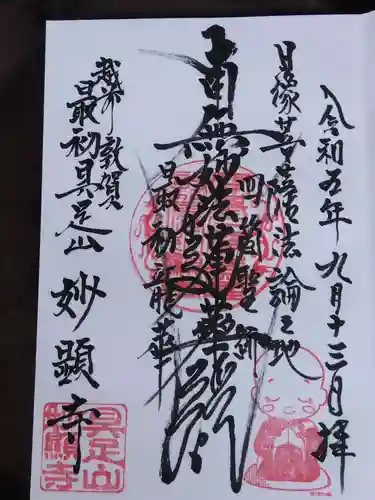 令和五年九月十三日拝
日像菩薩法論之地
四箇聖跡
南無妙法蓮華経
最初龍華
越前敦賀
最初具足山
妙顕寺
具足山
妙顕寺